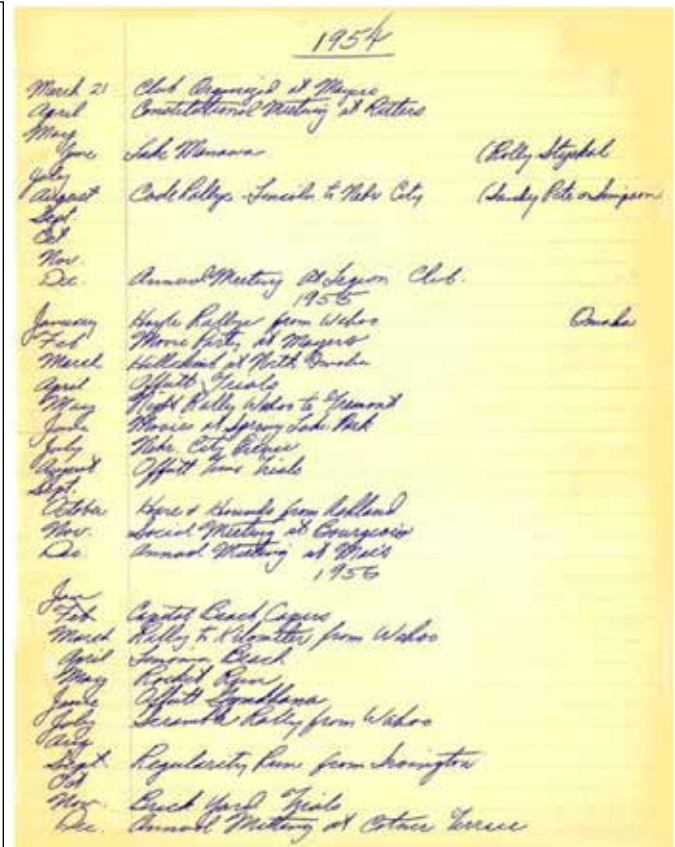 1954
March 21 Club Organized at Mayers
April Constitutional Meeting at Ritters
May
June Lake Manawa (Rolly Stypkal
July
August Code Rallye - Lincoln to Nebr City (Sandy Pete or Simpson
Sept
Oct
Nov.
Dec. Annual Meeting At Legion Club.
1955
January Rallye from Wahoo Omaha
Feb Movie Party at Mayers
March Hillclimb at North Omaha
April Offutt Trials
May Night Rally Wahoo to Fremont
June Movies at Spring Lake Park
July Nebr. City Picnic
August Offutt Time Trials
Sept.
October Hare & Hounds from Ashland
Nov. Social Meeting at Bourgeois
Dec. Annual Meeting at
1956
Jan
Feb Capitol Beach Capers
March Rally to Kilometer from Wahoo
April Linoma Beach
May Rocket Run
June Offutt Gymkhana
July Scramble Rally from Wahoo
Aug
Sept. Regularity Run from Irvington
Oct
Nov. Brick Yard Trials
Dec. Annual Meeting at Cotner Terrace